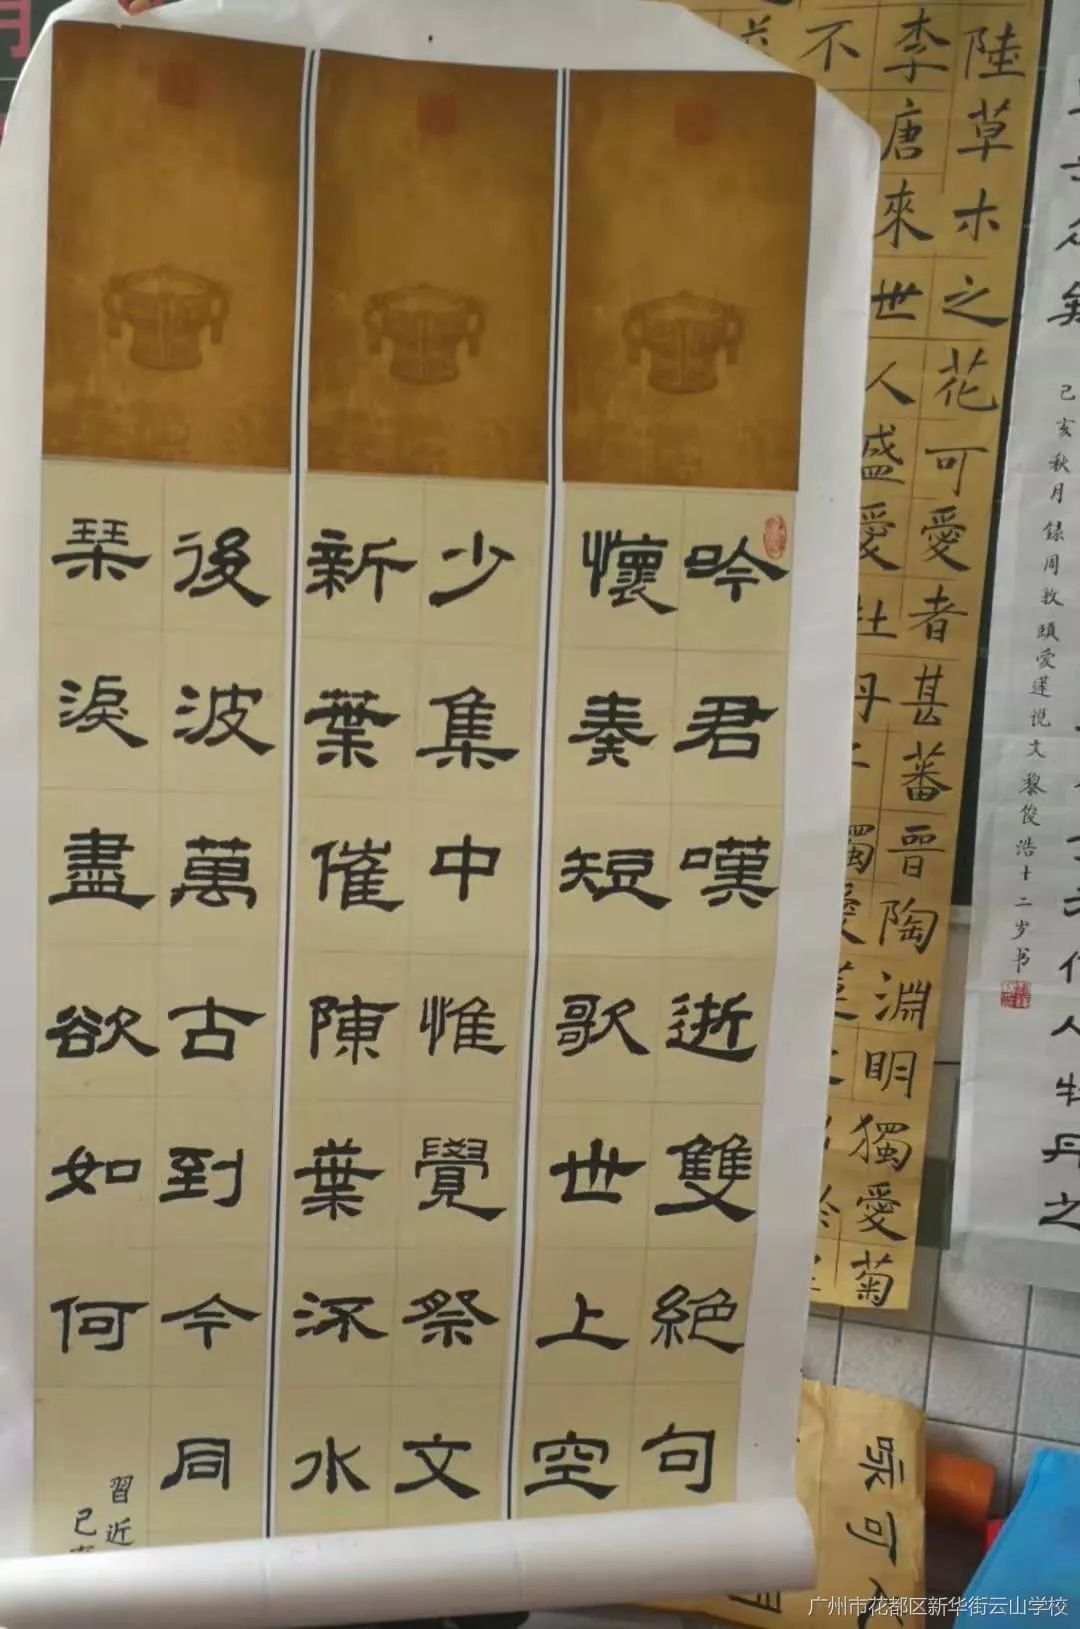 陸草木之花可愛者甚蕃晉陶淵明獨愛菊
李唐來世人盛愛牡丹
不
己亥秋月錄周敦頤愛蓮说文黎俊浩十二岁书
人牡丹之
吟君嘆逝雙絕句
懷奏短歌世上空
少集中惟覺祭文
新葉催陳葉流水
後波萬古到今同
琹淚盡欲如何
習近
己
可
广州市花都区新华街云山学校